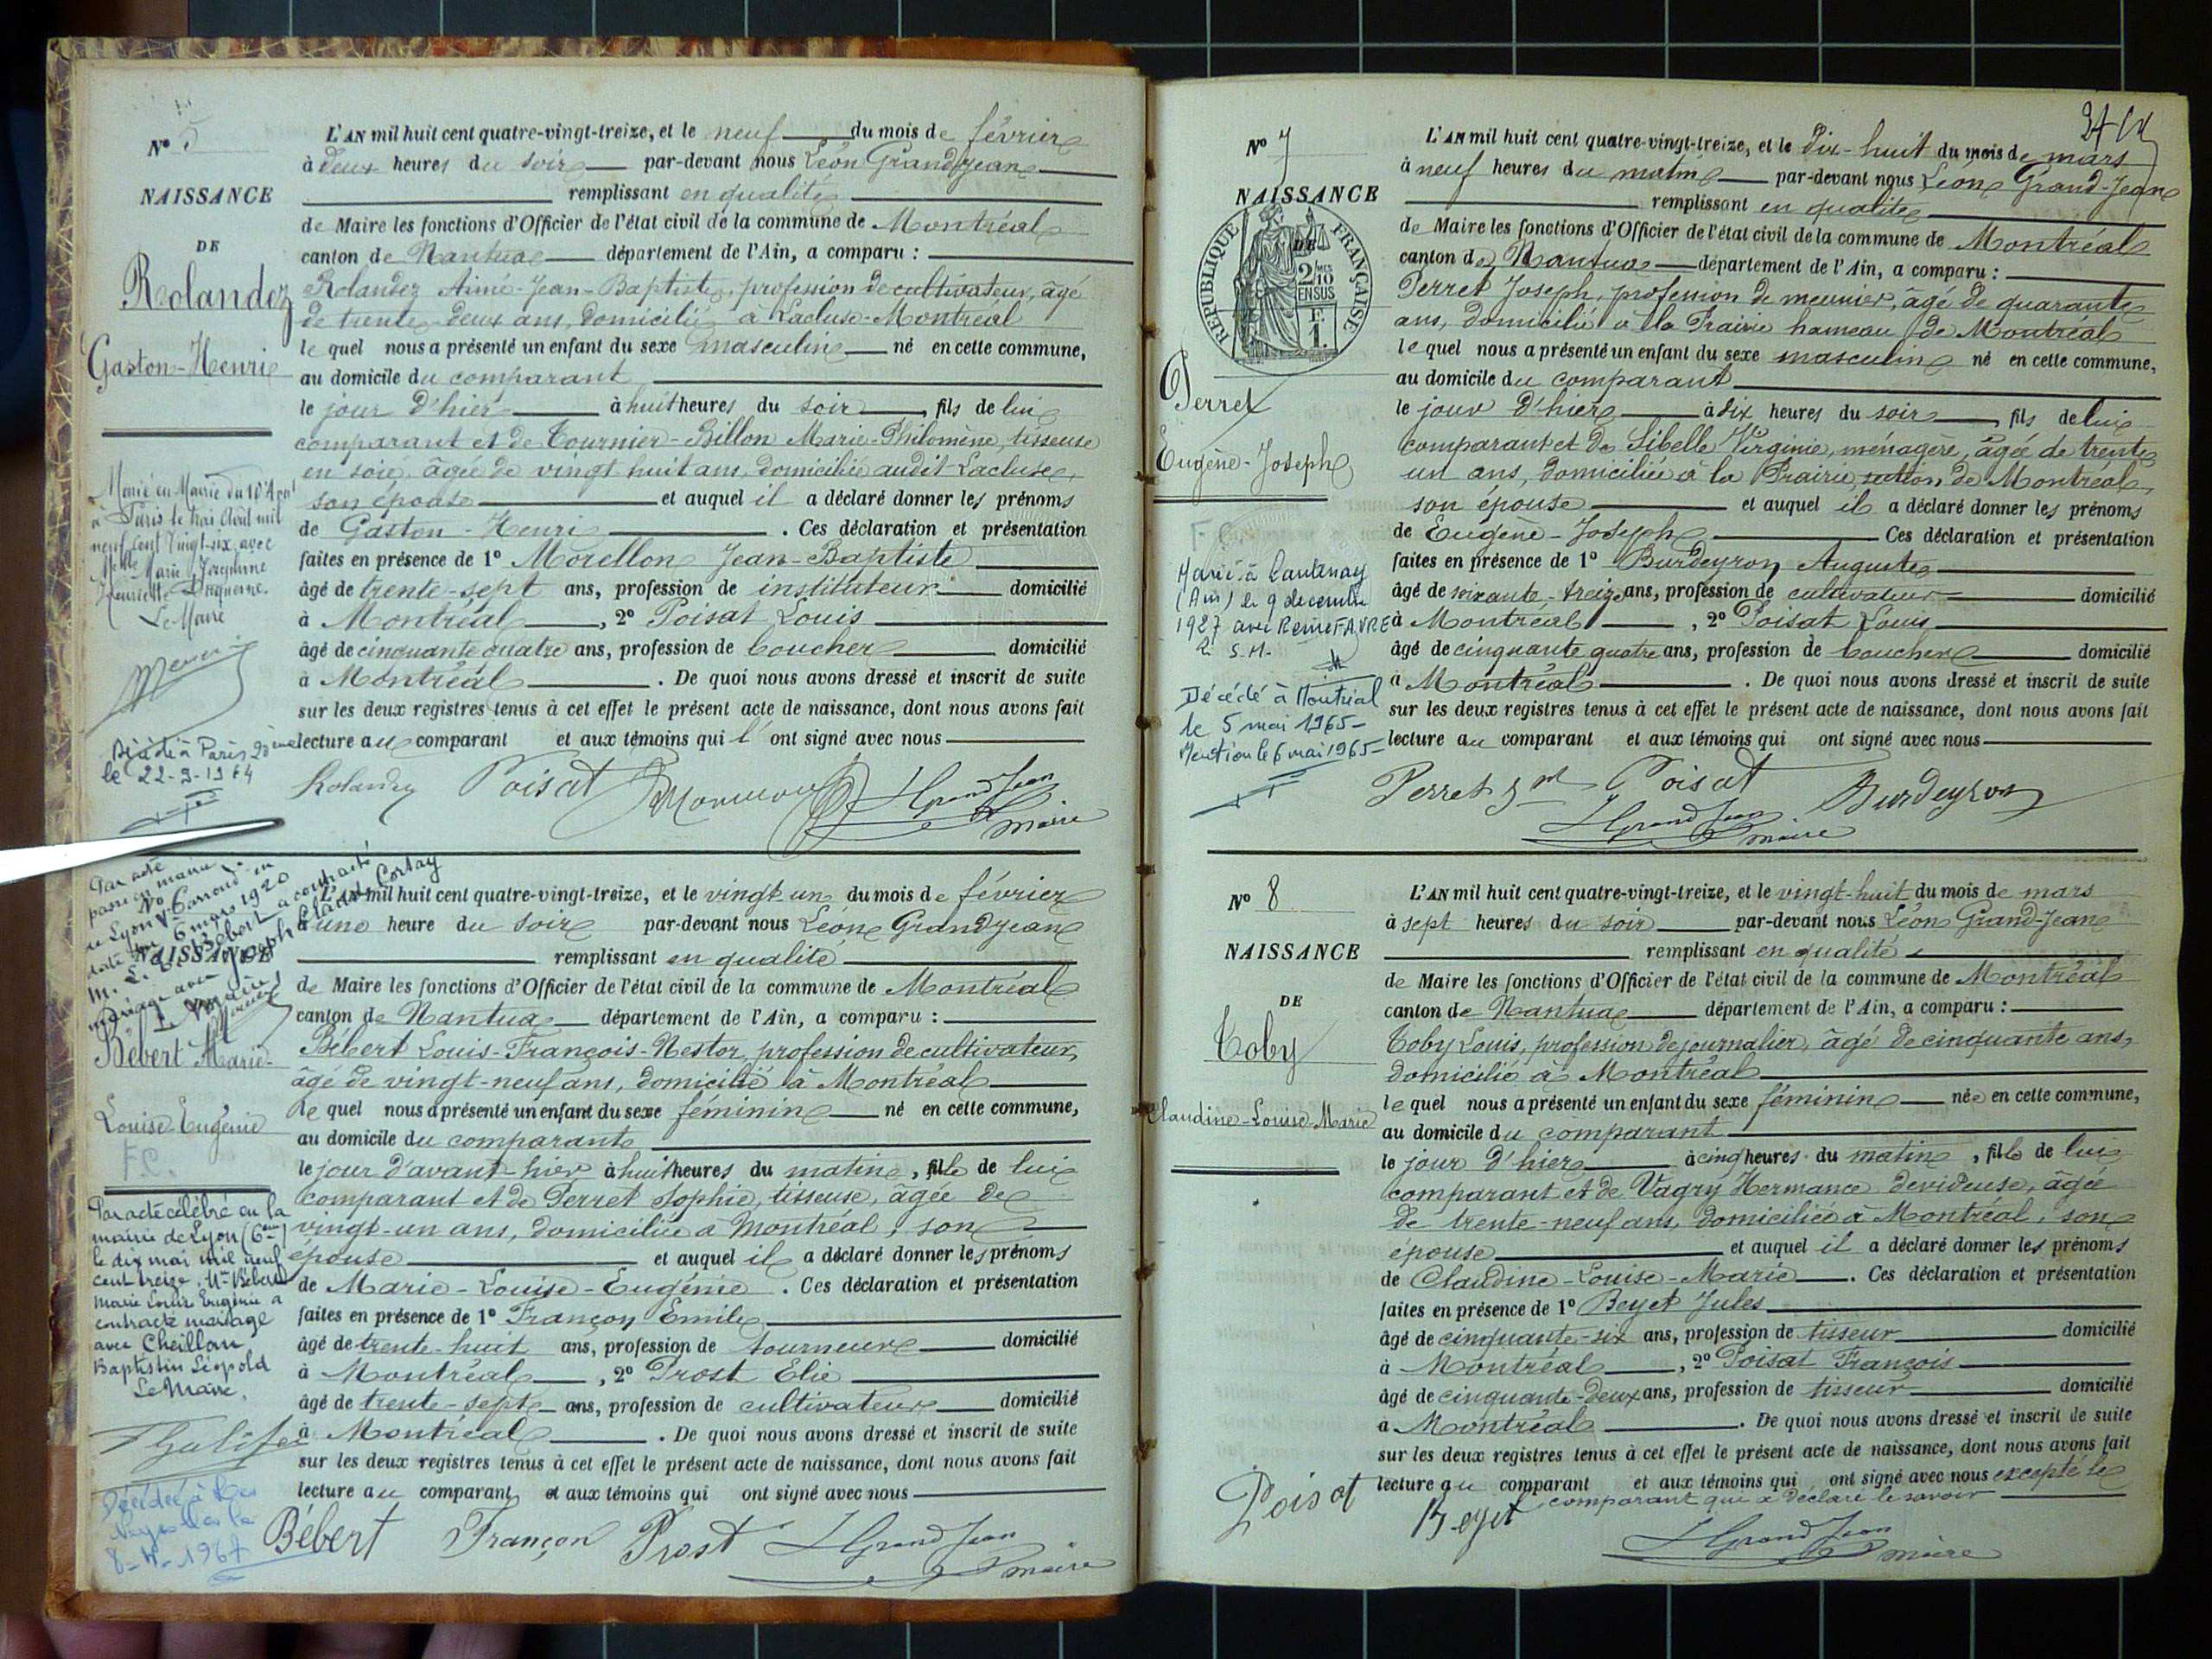 N° 5
NAISSANCE
DE
Rolandez
Gaston-Henri
Marié en Mairie du 10e Arrt
à Paris le trois Août mil
neuf cent vingt-six avec
Melle Marie Joséphine
Henriette
Le Maire
Décédé à Paris 20ème
le 22-9-1964
L'AN mil huit cent quatre-vingt-treize, et le neuf du mois de février
à deux heures du soir par-devant nous Léon Grandjean
remplissant en qualité
de Maire les fonctions d'Officier de l'état civil de la commune de Montréal
canton de Nantua département de l'Ain, a comparu :
Rolandez Aimé-Jean-Baptiste, profession de cultivateur, âgé
de trente-deux ans, domicilié à Lacluse-Montréal
lequel nous a présenté un enfant du sexe masculin né en cette commune,
au domicile du comparant
le jour d'hier à huit heures du soir, fils de lui
comparant et de Tournier-Billon Marie-Philomène, tisseuse
en soie, âgée de vingt huit ans, domiciliée audit Lacluse,
son épouse et auquel il a déclaré donner les prénoms
de Gaston-Henri. Ces déclaration et présentation
faites en présence de 1° Morellon Jean-Baptiste
âgé de trente-sept ans, profession de instituteur domicilié
à Montréal, 2° Poisat Louis
âgé de cinquante quatre ans, profession de boucher domicilié
à Montréal. De quoi nous avons dressé et inscrit de suite
sur les deux registres tenus à cet effet le présent acte de naissance, dont nous avons fait
lecture au comparant et aux témoins qui l'ont signé avec nous
Rolandez Poisat Morellon LGrandJean
maire
Par acte
passé en mairie
de Lyon
date du 6 mars 1920
M. L. E. Bébert a contracté
mariage avec Joseph Claude Cortay
Le Maire
N°
NAISSANCE
Bébert Marie-
Louise Eugénie
F.C.
Par acte célébré en la
mairie de Lyon (6eme)
le dix mai mil neuf
cent treize, Mlle Bébert
Marie Louise Eugénie a
contracté mariage
avec Cheillan
Baptistin Léopold
Le Maire,
Décédée à
8-4-1967
L'AN mil huit cent quatre-vingt-treize, et le vingt-un du mois de février
à une heure du soir par-devant nous Léon Grandjean
remplissant en qualité
de Maire les fonctions d'Officier de l'état civil de la commune de Montréal
canton de Nantua département de l'Ain, a comparu :
Bébert Louis-François-Nestor, profession de cultivateur,
âgé de vingt-neuf ans, domicilié à Montréal
lequel nous a présenté un enfant du sexe féminin né en cette commune,
au domicile du comparant
le jour d'avant-hier à huit heures du matin, fille de lui
comparant et de Perret Sophie, tisseuse, âgée de
vingt-un ans, domiciliée à Montréal, son
épouse et auquel il a déclaré donner les prénoms
de Marie-Louise-Eugénie. Ces déclaration et présentation
faites en présence de 1° Françon Emile
âgé de trente-huit ans, profession de tourneur domicilié
à Montréal, 2° Prost Elie
âgé de trente-sept ans, profession de cultivateur domicilié
à Montréal. De quoi nous avons dressé et inscrit de suite
sur les deux registres tenus à cet effet le présent acte de naissance, dont nous avons fait
lecture au comparant et aux témoins qui ont signé avec nous
Bébert Françon Prost LGrandJean
maire
N° 7
NAISSANCE
DE
RÉPUBLIQUE FRANÇAISE
2/10
EN SUS
1 F.
Perret
Eugène-Joseph
F.C.
Marié à Lantenay
(Ain) le 9 décembre
1927 avec Reine FAVRE
Décédé à Montréal
le 5 mai 1965-
Mention le 6 mai 1965-
L'AN mil huit cent quatre-vingt-treize, et le dix-huit du mois de mars
à neuf heures du matin par-devant nous Léon Grand-Jean
remplissant en qualité
de Maire les fonctions d'Officier de l'état civil de la commune de Montréal
canton de Nantua département de l'Ain, a comparu :
Perret Joseph, profession de meunier, âgé de quarante
ans, domicilié à la Prairie hameau de Montréal
lequel nous a présenté un enfant du sexe masculin né en cette commune,
au domicile du comparant
le jour d'hier à dix heures du soir, fils de lui
comparant et de Sibelle Virginie, ménagère, âgée de trente
un ans, domiciliée à la Prairie, section de Montréal,
son épouse et auquel il a déclaré donner les prénoms
de Eugène-Joseph Ces déclaration et présentation
faites en présence de 1° Burdeyron Auguste
âgé de soixante-treize ans, profession de cultivateur domicilié
à Montréal, 2° Poisat Louis
âgé de cinquante quatre ans, profession de boucher domicilié
à Montréal. De quoi nous avons dressé et inscrit de suite
sur les deux registres tenus à cet effet le présent acte de naissance, dont nous avons fait
lecture au comparant et aux témoins qui ont signé avec nous
Perret Poisat Burdeyron
LGrandJean
maire
N° 8
NAISSANCE
DE
Toby
Claudine-Louise-Marie
L'AN mil huit cent quatre-vingt-treize, et le vingt-huit du mois de mars
à sept heures du soir par-devant nous Léon Grand-Jean
remplissant en qualité
de Maire les fonctions d'Officier de l'état civil de la commune de Montréal
canton de Nantua département de l'Ain, a comparu :
Toby Louis, profession de journalier, âgé de cinquante ans,
domicilié à Montréal
lequel nous a présenté un enfant du sexe féminin née en cette commune,
au domicile du comparant
le jour d'hier à cinq heures du matin, fille de lui
comparant et de Vagry Hermance devideuse, âgée
de trente-neuf ans, domiciliée à Montréal, son
épouse et auquel il a déclaré donner les prénoms
de Claudine-Louise-Marie. Ces déclaration et présentation
faites en présence de 1° Beyet Jules
âgé de cinquante-six ans, profession de tisseur domicilié
à Montréal, 2° Poisat François
âgé de cinquante-deux ans, profession de tisseur domicilié
à Montréal. De quoi nous avons dressé et inscrit de suite
sur les deux registres tenus à cet effet le présent acte de naissance, dont nous avons fait
lecture au comparant et aux témoins qui ont signé avec nous excepté le
comparant qui a déclaré le savoir
Poisat Beyet
LGrandJean
maire